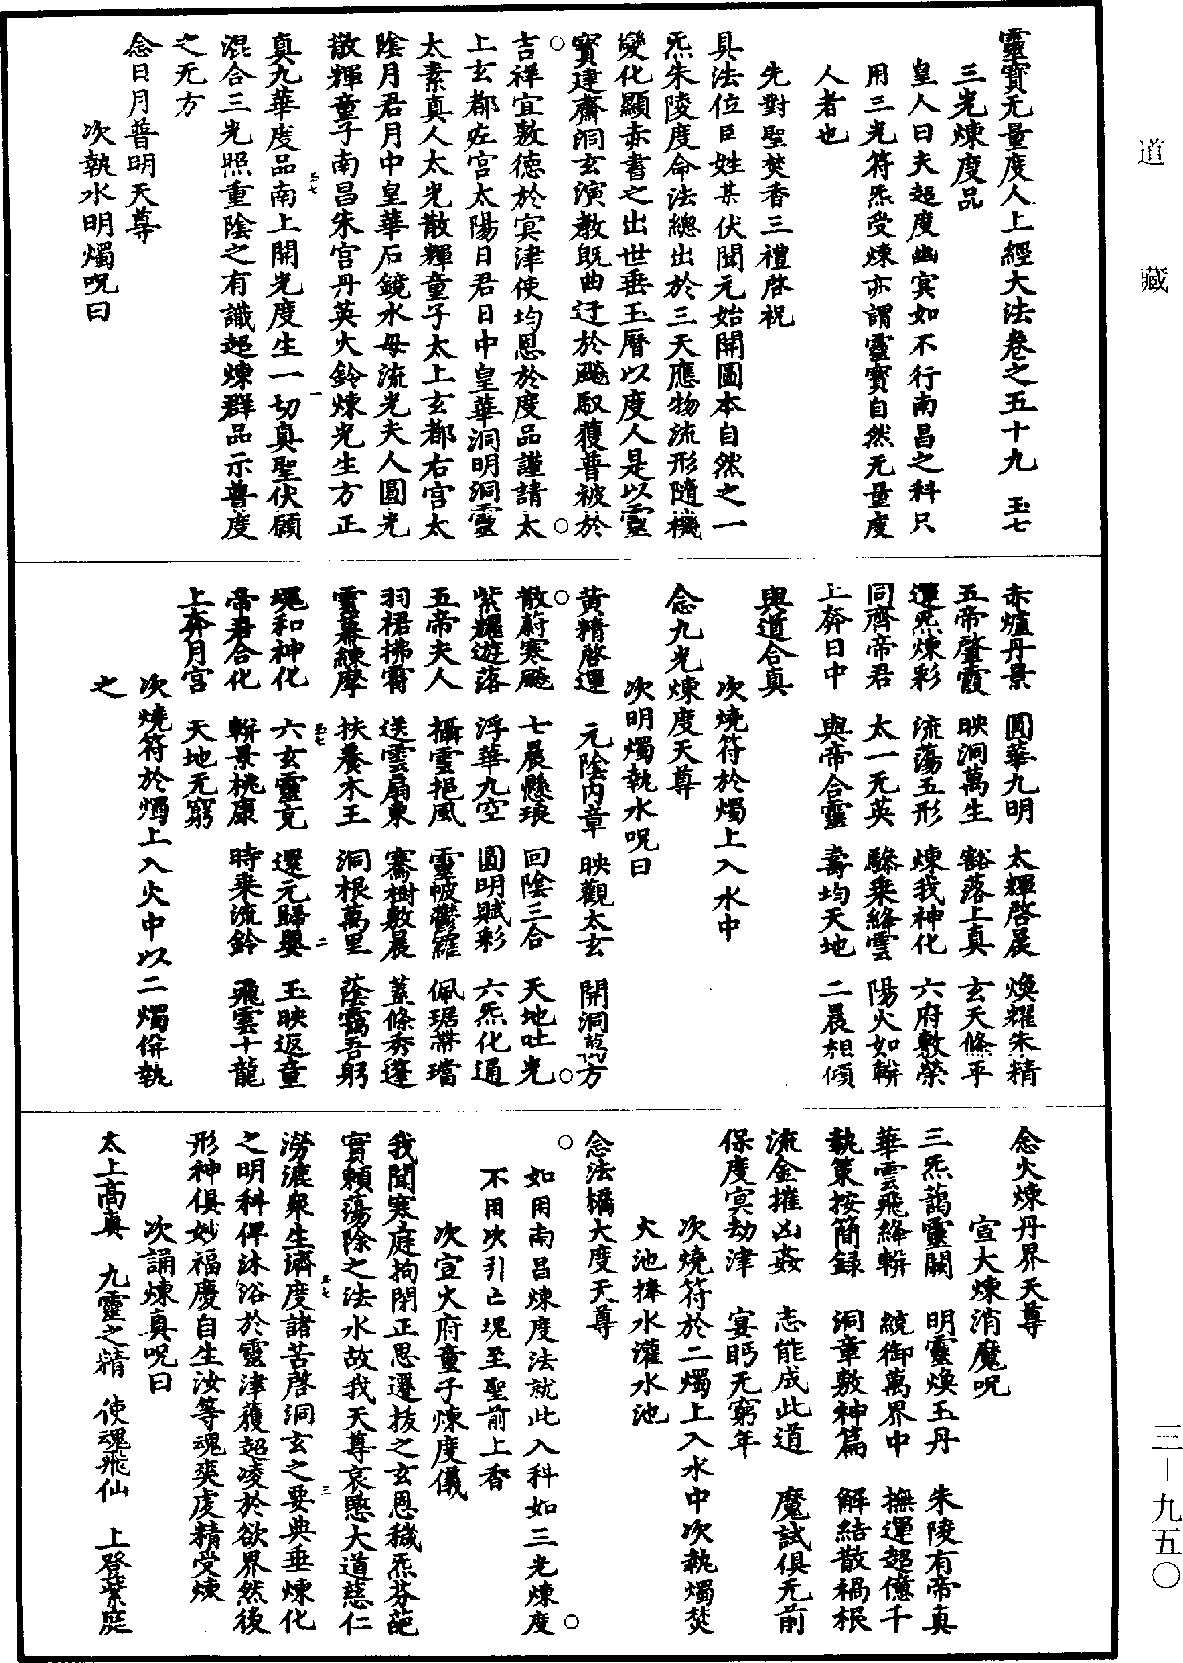 靈寶无量度人上經大法卷之五十九 玉七
三光煉度品
皇人曰夫超度幽冥如不行南昌之科只
用三光符炁受煉亦謂靈寶自然无量度
人者也
先對聖焚香三禮啓祝
具法位臣姓某伏聞元始開圖本自然之一
炁朱陵度命法總出於三天應物流形隨機
變化顯赤書之出世垂玉曆以度人是以靈
寶建齋洞玄演教既曲迂於飈馭獲普被於
吉祥宜敷德於冥津使均恩於度品謹請太
上玄都左宮太陽日君日中皇華洞明洞靈
太素真人太光散輝童子太上玄都右宮太
陰月君月中皇華石鏡水母流光夫人圓光
散輝童子南昌朱宮丹英火鈴煉光生方正
真九華度品南上開光度生一切真聖伏願
混合三光照重陰之有識超煉群品示普度
之无方
念日月普明天尊
次執水明燭呪曰
赤爐丹景 圓華九明 太輝啓晨 煥耀朱精
五帝聳霞 映洞萬生 豁落上真 玄天儵平
運炁煉彩 流蕩五形 煉我神化 六府敷榮
同齊帝君 太一无英 驂乘絳雲 陽火如軿
上奔日中 與帝合靈 壽均天地 二晨相傾
與道合真
次燒符於燭上入水中
念九光煉度天尊
次明燭執水呪曰
黄精啓運 元陰內章 映觀太玄 開洞萬方
散蔚寒飈 七晨懸琅 回陰三合 天地吐光
紫耀遊落 浮華九空 圓明賦彩 六炁化通
五帝夫人 攝靈挹風 靈帔鬱羅 佩琚帶璫
羽裙拂霄 送雲扇東 騫樹敷晨 蓋條秀蓬
雲幕練摩 扶養木王 洞根萬里 蔭靄吾躬
魂和神化 六玄靈克 還元歸嬰 玉映返童
帝君合化 軿景桃康 時乘流鈴 飛雲十龍
上奔月宮 天地无窮
次燒符於燭上入火中以二燭併執
之
念火煉丹界天尊
宣大煉消魔呪
三炁藹靈闕 明靈煥玉丹 朱陵有帝真
華雲飛絳軿 統御萬界中 撫運超億千
執策按簡録 洞章敷神篇 解結散禍根
流金摧凶姦 志能成此道 魔試俱无前
保度冥劫津 宴眄无窮年
次燒符於二燭上入水中次執燭焚
大池捧水灌水池
念法橋大度天尊
如用南昌煉度法就此入科如三光煉度
不用次引亡魂至聖前上香
次宣火府童子煉度儀
我聞寒庭拘閉正思遷拔之玄恩穢炁芬葩
實頼蕩除之法水故我天尊哀愍大道慈仁
澇漉衆生濟度諸苦啓洞玄之要典垂煉化
之明科俾沐浴於靈津獲超凌於欲界然後
形神俱妙福慶自生汝等魂爽虔精受煉
次誦煉真呪曰
太上高真 九靈之精 使魂飛仙 上登紫庭
玉七 一
玉七 二
玉七 三
道藏
三—九五〇